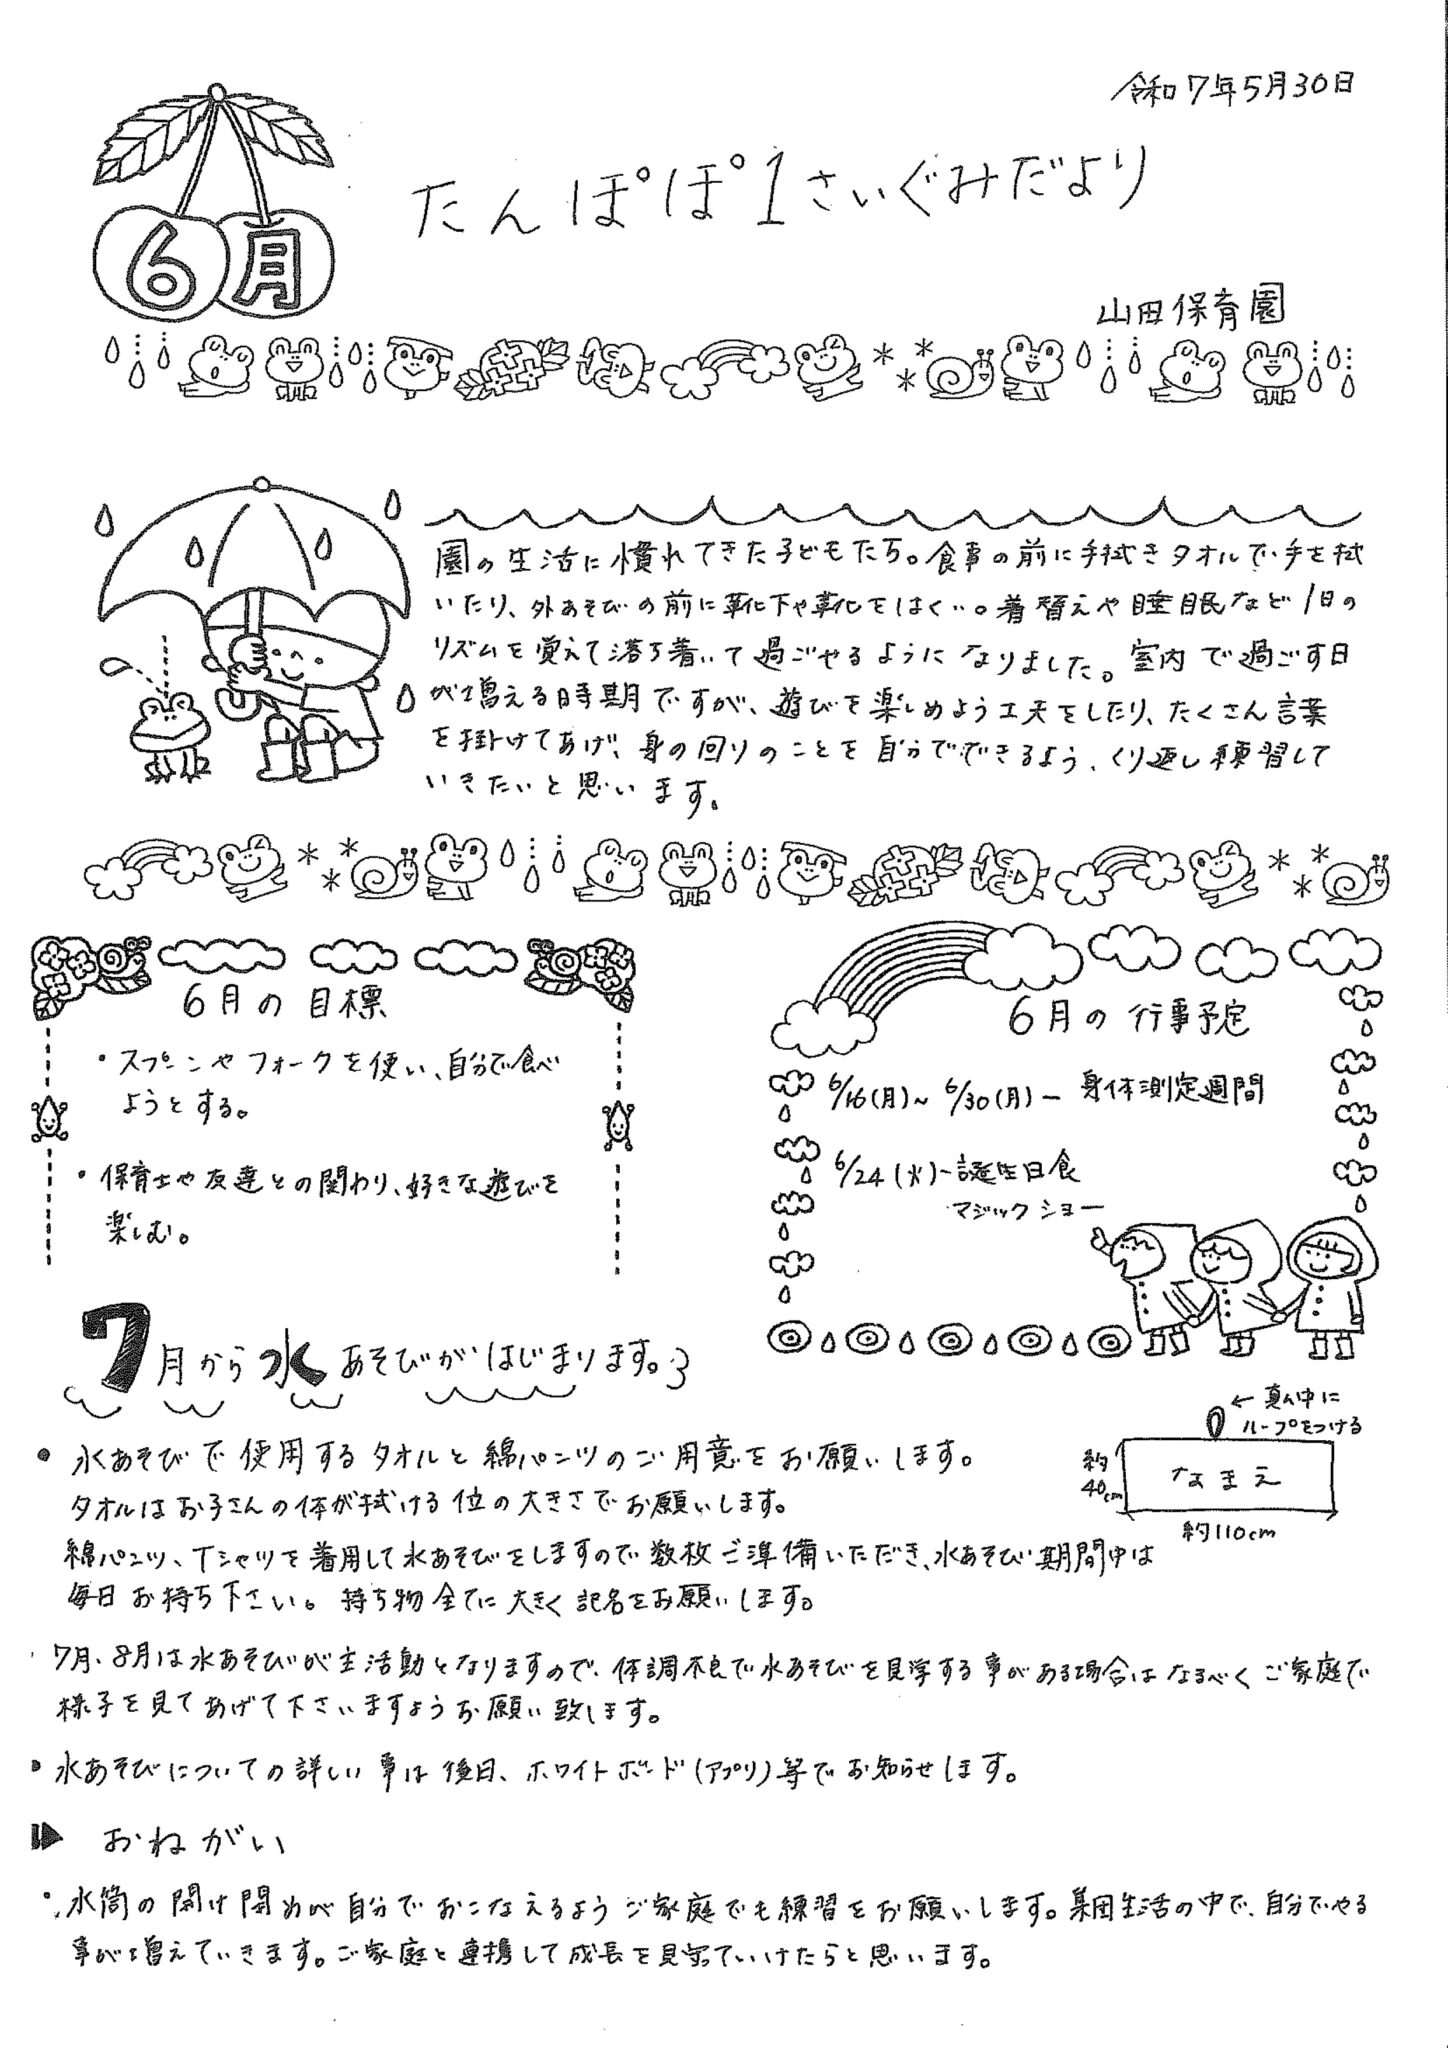 令和7年5月30日
6月
たんぽぽ1さいぐみだより
山田保育園
園の生活に慣れてきた子どもたち。食事の前に手拭きタオルで手を拭
いたり、外あそびの前に靴下や靴をはく…。着替えや睡眠など1日の
リズムを覚えて落ち着いて過ごせるようになりました。室内で過ごす日
が増える時期ですが、遊びを楽しめよう工夫をしたり、たくさん言葉
を掛けてあげ、身の回りのことを自分でできるよう、くり返し練習して
いきたいと思います。
6月の目標
・スプーンやフォークを使い、自分で食べ
ようとする。
・保育士や友達との関わり、好きな遊びを
楽しむ。
6月の行事予定
6/16(月)~6/30(月)ー身体測定週間
6/24(火)ー誕生日食
マジックショー
7月から水あそびがはじまります。
←真ん中に
ループをつける
約
40cm
なまえ
約110cm
・水あそびで使用するタオルと綿パンツのご用意をお願いします。
タオルはお子さんの体が拭ける位の大きさでお願いします。
綿パンツ、Tシャツを着用して水あそびをしますので数枚ご準備いただき、水あそび期間中は
毎日お持ち下さい。持ち物全てに大きく記名をお願いします。
・7月、8月は水あそびが主活動となりますので、体調不良で水あそびを見学する事がある場合はなるべくご家庭で
様子を見てあげて下さいますようお願い致します。
・水あそびについての詳しい事は後日、ホワイトボード(アプリ)等でお知らせします。
おねがい
・水筒の開け閉めが自分でおこなえるようご家庭でも練習をお願いします。集団生活の中で、自分でやる
事が増えていきます。ご家庭と連携して成長を見守っていけたらと思います。